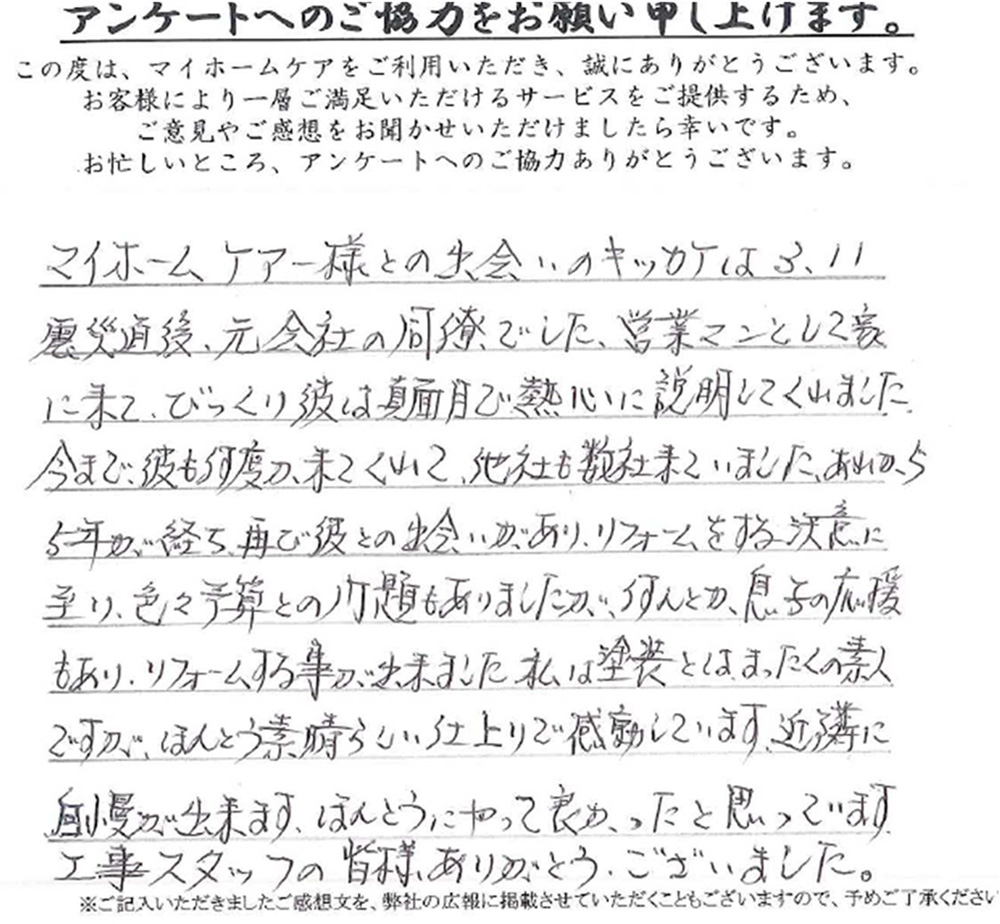 アンケートへのご協力をお願い申し上げます。
この度は、マイホームケアをご利用いただき、誠にありがとうございます。
お客様により一層ご満足いただけるサービスをご提供するため、
ご意見やご感想をお聞かせいただけましたら幸いです。
お忙しいところ、アンケートへのご協力ありがとうございます。
マイホームケアー様との出会いのキッカケは3.11
震災直後、元会社の同僚でした、営業マンとして家
に来て、びっくり彼は真面目で熱心に説明してくれました
今まで、彼も何度か、来てくれて、他社も数社来ていました、あれから
5年が経ち、再び彼との出会いがあり、リフォームをする決意に
至り、色々予算との問題もありましたが、なんとか、息子の応援
もあり、リフォームする事が出来ました 私は塗装とはまったくの素人
ですが、ほんとう素晴らしい仕上りで感動しています、近隣に
自慢が出来ます、ほんとうにやって良かったと思っています
工事スタッフの皆様、ありがとう、ございました。
※ご記入いただきましたご感想文を、弊社の広報に掲載させていただくこともございますので、予めご了承ください